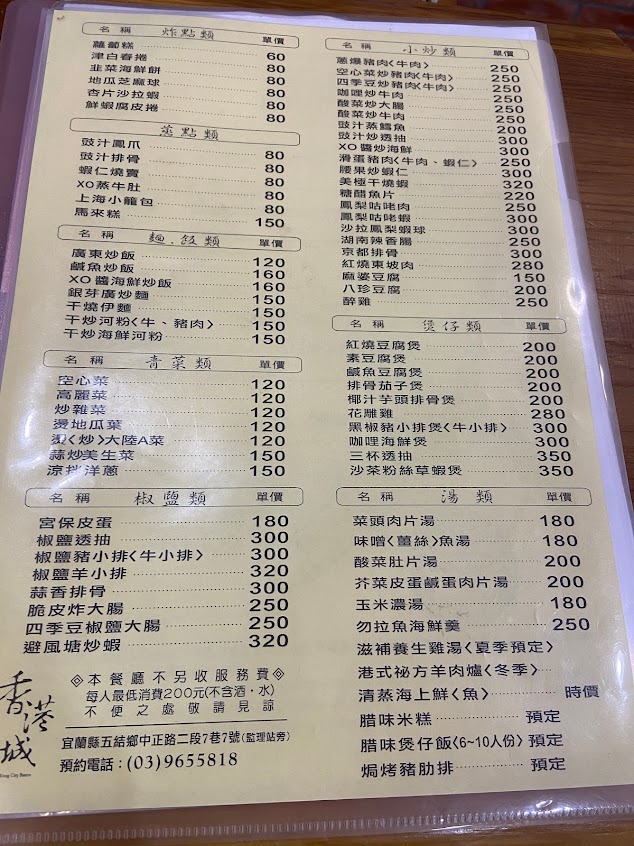 名 稱 炸點類 單價
蘿蔔糕 60
津白春捲 80
韭菜海鮮餅 80
地瓜芝麻球 80
杏片沙拉蝦 80
鮮蝦腐皮捲 80
蒸點類
豉汁鳳爪 80
豉汁排骨 80
蝦仁燒賣 80
XO蒸牛肚 80
上海小籠包 80
馬來糕 150
名 稱 麵.飯類 單價
廣東炒飯 120
鹹魚炒飯 160
XO醬海鮮炒飯 160
銀芽廣炒麵 150
干燒伊麵 150
干炒河粉〈牛、豬肉〉 150
干炒海鮮河粉 150
名 稱 青菜類 單價
空心菜 120
高麗菜 120
炒雜菜 120
燙地瓜菜 120
燙〈炒〉大陸A菜 150
蒜炒美生菜 150
涼拌洋蔥 150
名 稱 椒鹽類 單價
宮保皮蛋 180
椒鹽透抽 300
椒鹽豬小排〈牛小排〉 300
椒鹽羊小排 320
蒜香排骨 300
脆皮炸大腸 250
四季豆椒鹽大腸 250
避風塘炒蝦 320
香港城
本餐廳不另收服務費
每人最低消費200元(不含酒.水)
不便之處敬請見諒
宜蘭縣五結鄉中正路二段7巷7號(監理站旁)
預約電話：(03)9655818
名 稱 小炒類 單價
蔥爆豬肉〈牛肉〉 250
空心菜炒豬肉〈牛肉〉 250
四季豆炒豬肉〈牛肉〉 250
咖哩炒牛肉 250
酸菜炒大腸 250
酸菜炒牛肉 250
豉汁蒸鱈魚 200
豉汁炒透抽 300
XO醬炒海鮮 300
滑蛋豬肉〈牛肉、蝦仁〉 250
腰果炒蝦仁 300
美極干燒蝦 320
糖醋魚片 220
鳳梨咕咾肉 250
鳳梨咕咾蝦 300
沙拉鳳梨蝦球 300
湖南辣香腸 250
京都排骨 300
紅燒東坡肉 280
麻婆豆腐 150
八珍豆腐 200
醉雞 250
名 稱 煲仔類 單價
紅燒豆腐煲 200
素豆腐煲 200
鹹魚豆腐煲 200
排骨茄子煲 200
椰汁芋頭排骨煲 200
花雕雞 280
黑椒豬小排煲〈牛小排〉 300
咖哩海鮮煲 300
三杯透抽 350
沙茶粉絲草蝦煲 350
名 稱 湯類 單價
菜頭肉片湯 180
味噌〈薑絲〉魚湯 180
酸菜肚片湯 200
芥菜皮蛋鹹蛋肉片湯 200
玉米濃湯 180
勿拉魚海鮮羹 250
滋補養生雞湯〈夏季預定〉
港式祕方羊肉爐〈冬季〉
清蒸海上鮮〈魚〉 時價
腊味米糕 預定
腊味煲仔飯〈6~10人份〉 預定
焗烤豬肋排 預定